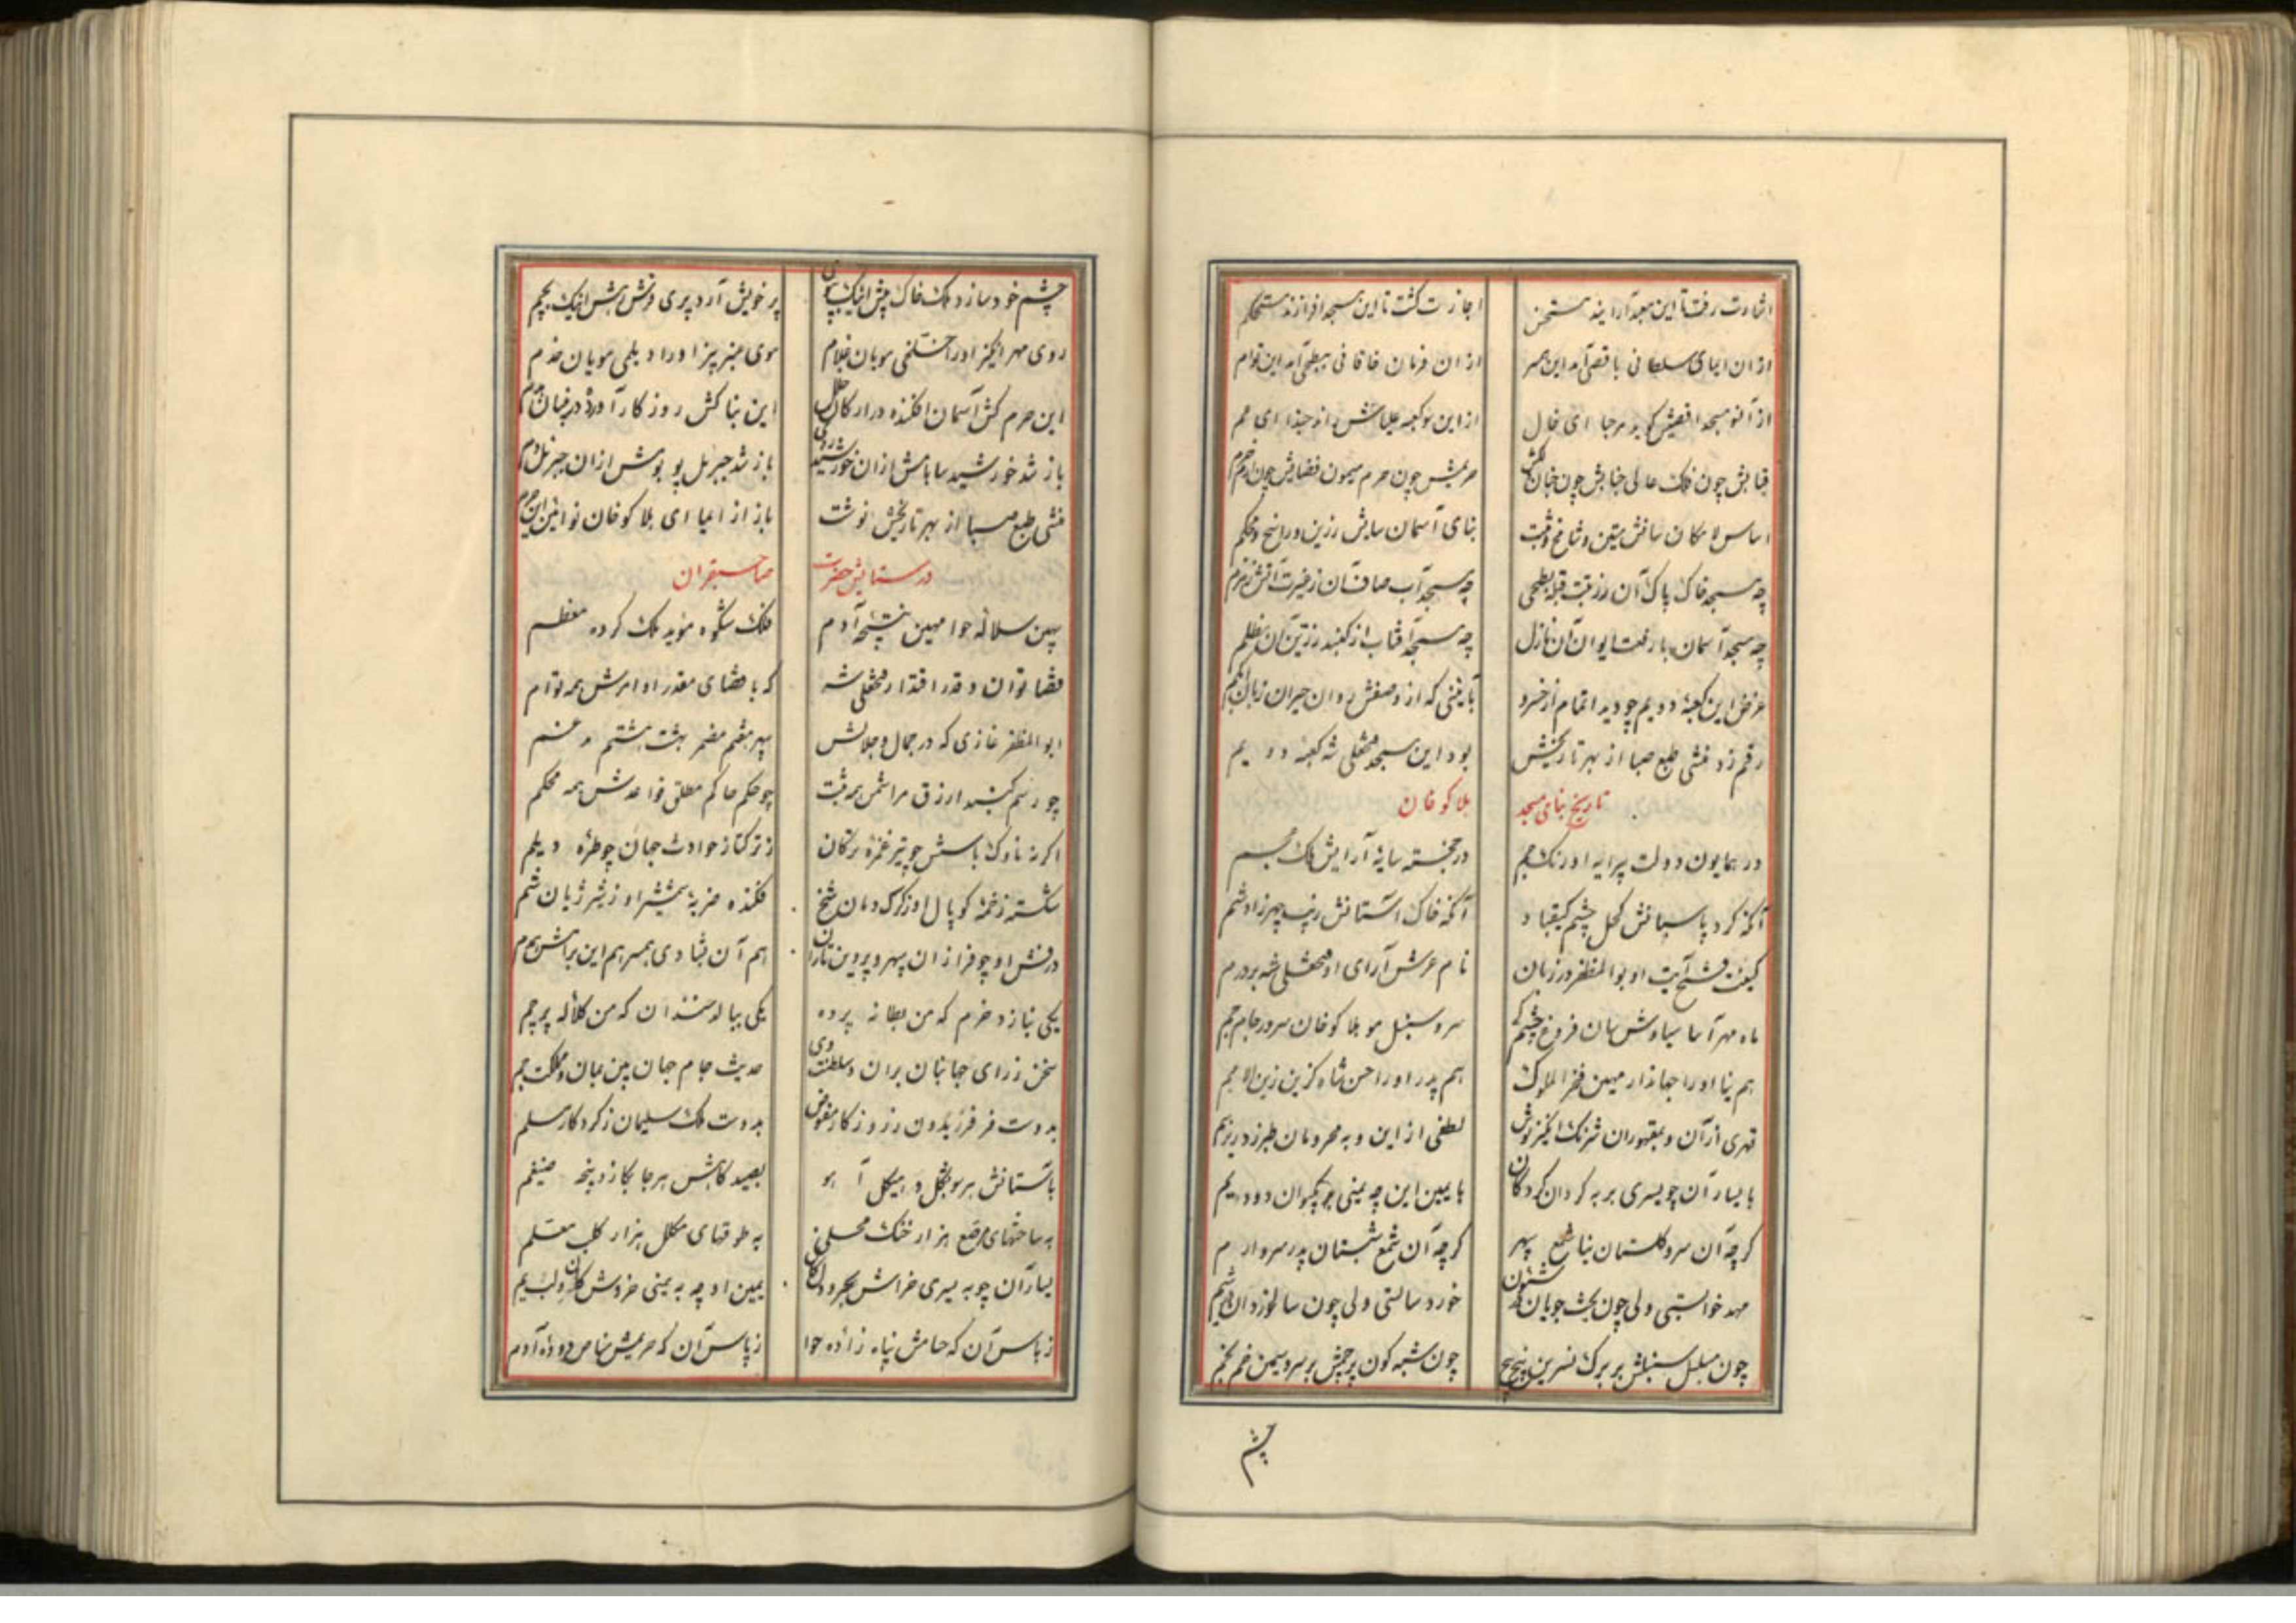 اشارت رفت تا این معبد آرایند مستحسن
اجازت گشت تا این مسجد افرازند مستحکم
از ان ایمای سلطانی باقصی آمد این همسر
از ان فرمان خاقانی ببطحی آمد این توام
از آنسو مسجد اقصیش گوید مرحبا ای خال
از این سو کعبه علیاش راند حبذا ای عم
قبابش چون فلک عالی جنابش چون جنان
حریمش چون حرم میمون فضایش چون ارم خرم
اساس لامکان سانش متین و شامخ و مثبت
بنای آسمان سایش رزین و راسخ و محکم
چه مسجد خاک پاک آن رزتبت قبله بطحی
چه مسجد آب صاف آن زغیرت آتش زمزم
چه مسجد آسمان با رفعت ایوان آن نازل
چه مسجد آفتاب از گنبد زرین آن مظلم
غرض این کعبهٔ دویم چو دید اتمام از خسرو
بایینی که از وصفش روان حیران زبان ابکم
رقم زد منشی طبع صبا از بهر تاریخش
بود این مسجد فتحعلی شه کعبه دویم
تاریخ بنای مسجد
هلاکوخان
در همایون دولت پیرایه اورنگ جم
در خجسته سایهٔ آرایش ملک عجم
آنکه گرد پاسبانش کحل چشم کیقباد
آنکه خاک آستانش زیب چهر زادشم
کنیت فتح آیت او بوالمظفر در زبان
نام عرش آرای او فتحعلی شه بر درم
ماه مهرآسا سیاوش سان فروغ چشم کی
سرو سنبل مو هلاکوخان سرور جام جم
هم نیا او را جهاندار مهین فخر الملوک
هم پدر او را حسن شاه گزین زین الامم
قهری از آن و بمقهوران شرنگ انگیز نوش
لطفی از این و به محرومان طبرزد ریز سم
با یسار آن چو یسری بر به گردان گردکان
با یمین این چه یمنی چو بکیوان دود یم
گرچه آن سرو گلستان نیا شمع سپهر
گرچه آن شمع شبستان پدر سرو ارم
مهد خوابستی ولی چون بخت جویان
خورد سالستی ولی چون سالخوزدان
چون مسلسل سنبلش بر برگ نسرین پیچ پیچ
چون شبه گون پرچمش بر سرو سیمین خم بخم
چشم
چشم خود سازد ملک خاک پیش اینک بپوی
پر خویش آرد پری فرش رهش اینک بچم
روی مهر انگیز او را خلخی مویان غلام
موی عنبر بیز او را دیلمی مویان خدم
این حرم کش آسمان افکنده در ارکان خلل
این بنا کش روزگار آورده در بنیان
باز شد خورشید سا بامش از ان خورشید روی
باز شد جبریل پو بومش از ان جبریل دم
منشی طبع صبا از بهر تاریخش نوشت
باز از احیای هلاکوخان نو آئین این حرم
در ستایش حضرت
صاحبقران
بهین سلاله حوا مهین نتیجه آدم
فلک شکوه مؤید ملک گروه معظم
قضا توان و قدر اقتدار فتحعلی شه
که با قضای مقدر اوامرش همه توام
ابوالمظفر غازی که در جمال و جلالش
سپهر هفتم مضمر بهشت هشتم مدغم
چو رسم گنبد ازرق مراسمش همه مثبت
چو حکم حاکم مطلق قواعدش همه محکم
اگر نه ناوک باسش چو تیر غمزه ترکان
ز ترکتاز حوادث جهان چو طرّه دیلم
شکسته زخمه کوپال او ز گرگ دمان شخ
فکنده ضربهٔ شمشیر او ز شیر ژیان شم
درفش او چو فرازان سپهر و پروین تازان
هم آن بشادی همسر هم این برامش همدم
یکی بنازد خرم که من بطانه پرده
یکی ببالد شندان که من کلاله پرچم
سخن ز رای جهانبان بران و سلطنت وی
حدیث جام جهان بین بمان و مملکت جم
بدوت فر فریدون ز روزگار مفوض
بدوت ملک سلیمان ز کردگار مسلم
بآستانش هر سو بشکل و هیکل آهو
بصید گاهش هر جا بگاز و پنجه ضیغم
به ساختهای مرصع هزار خنگ محلی
به طوقهای مکلل هزار کلب معلم
یسار آن چو به یسری خراش بحر و دل کان
یمین او چه به یمنی خروش کان و لب یم
ز پاس آن که حمایش پناه زادهٔ حوا
ز پاس آن که حریمش مناص دودهٔ آدم